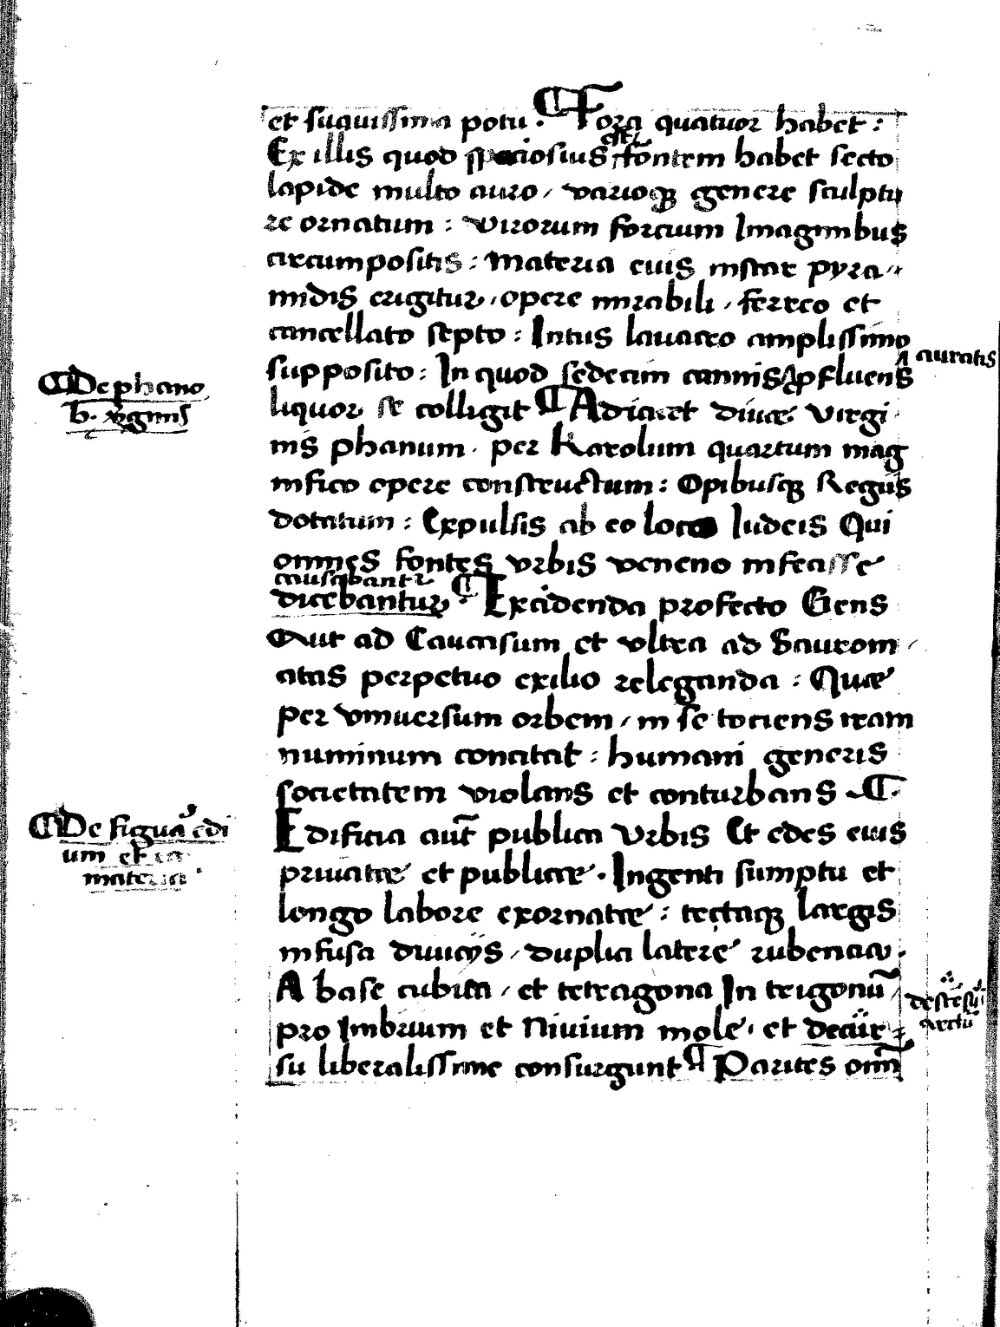 et suauissima potu . ¶ Fora quatuor habet :
Ex illis quod spaciosius est fontem habet secto
lapide multo auro / varioqȝ genere sculptu
re ornatum : virorum fortium Imaginibus
circumpositis : Materia eius instar pyra
midis erigitur / opere mirabili / ferreo et
cancellato septo : Intus lauacro amplissimo
supposito : In quod sedecim cannis auratis ꝓfluens
liquor se colligit ¶ Adiacet diuae Virgi
nis phanum . per Karolum quartum mag
nifico opere constructum : Opibusqȝ Regiis
dotatum : Expulsis ab eo loco Iudeis Qui
omnes fontes vrbis veneno infecisse
causabantr
dicebantur . ¶ Excidenda profecto Gens
Aut ad Caucasum et vltra ad Saurom
atas perpetuo exilio releganda : Quae
per vniuersum orbem / in se tociens iram
numinum concitat : humani generis
societatem violans et conturbans ¶
Edificia aut̄ publica Vrbis Et edes eius
priuatae et publicae . Ingenti sumptu et
longo labore exornatae : tectaqȝ largis
infusa diuicijs / duplici latere rubencia .
A base cubica / et tetragona In trigonū
pro Imbrium et Niuium mole / et decur
su liberalissime consurgunt ¶ Parites omn̄
¶ De phano
b. v̓ginis
¶ De figura edi
um et
materia
auratis